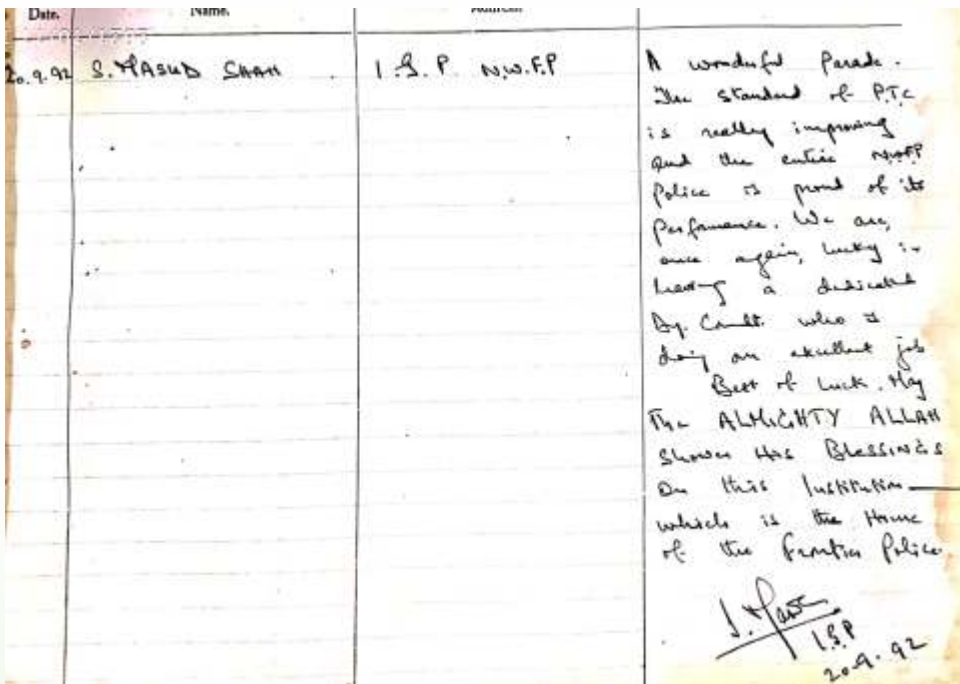 Date.
Name.
Address.
20.9.92 S. MASUD SHAH I.G.P. N.W.F.P
A wonderful Parade.
The standard of P.T.C
is really improving
and the entire NWFP
Police is proud of its
Performance. We are,
once again, lucky in
having a dedicated
Dy. Comdt. who is
doing an excellent job
Best of Luck. May
The ALMIGHTY ALLAH
Shower His BLESSINGS
On this Institution
which is the Home
of the Frontier Police
S. Masud
I.G.P
20.9.92